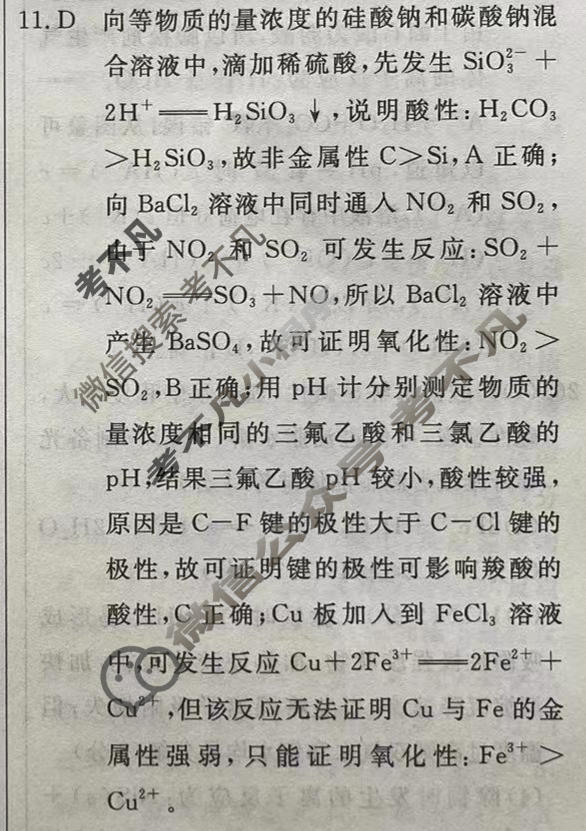 11. D 向等物质的量浓度的硅酸钠和碳酸钠混
合溶液中,滴加稀硫酸,先发生 SiO₃²⁻ +
2H⁺ ══ H₂SiO₃ ↓ ,说明酸性: H₂CO₃
>H₂SiO₃,故非金属性 C>Si,A 正确;
向 BaCl₂ 溶液中同时通入 NO₂ 和 SO₂,
由于 NO₂ 和 SO₂ 可发生反应: SO₂ +
NO₂ ══ SO₃ + NO,所以 BaCl₂ 溶液中
产生 BaSO₄,故可证明氧化性: NO₂ >
SO₂,B 正确;用 pH 计分别测定物质的
量浓度相同的三氟乙酸和三氯乙酸的
pH,结果三氟乙酸 pH 较小,酸性较强,
原因是 C—F 键的极性大于 C—Cl 键的
极性,故可证明键的极性可影响羧酸的
酸性,C 正确;Cu 板加入到 FeCl₃ 溶液
中,可发生反应 Cu+2Fe³⁺ ══ 2Fe²⁺ +
Cu²⁺,但该反应无法证明 Cu 与 Fe 的金
属性强弱,只能证明氧化性: Fe³⁺ >
Cu²⁺。
考不凡
微信搜索 考不凡
考不凡小程序
微信公众号 考不凡